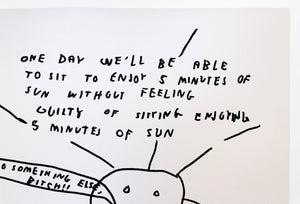 ONE DAY WE'LL BE ABLE
TO SIT TO ENJOY 5 MINUTES OF
SUN WITHOUT FEELING
GUILTY OF SITTING ENJOYING
5 MINUTES OF SUN
O SOMETHING ELSE,
BITCH!!